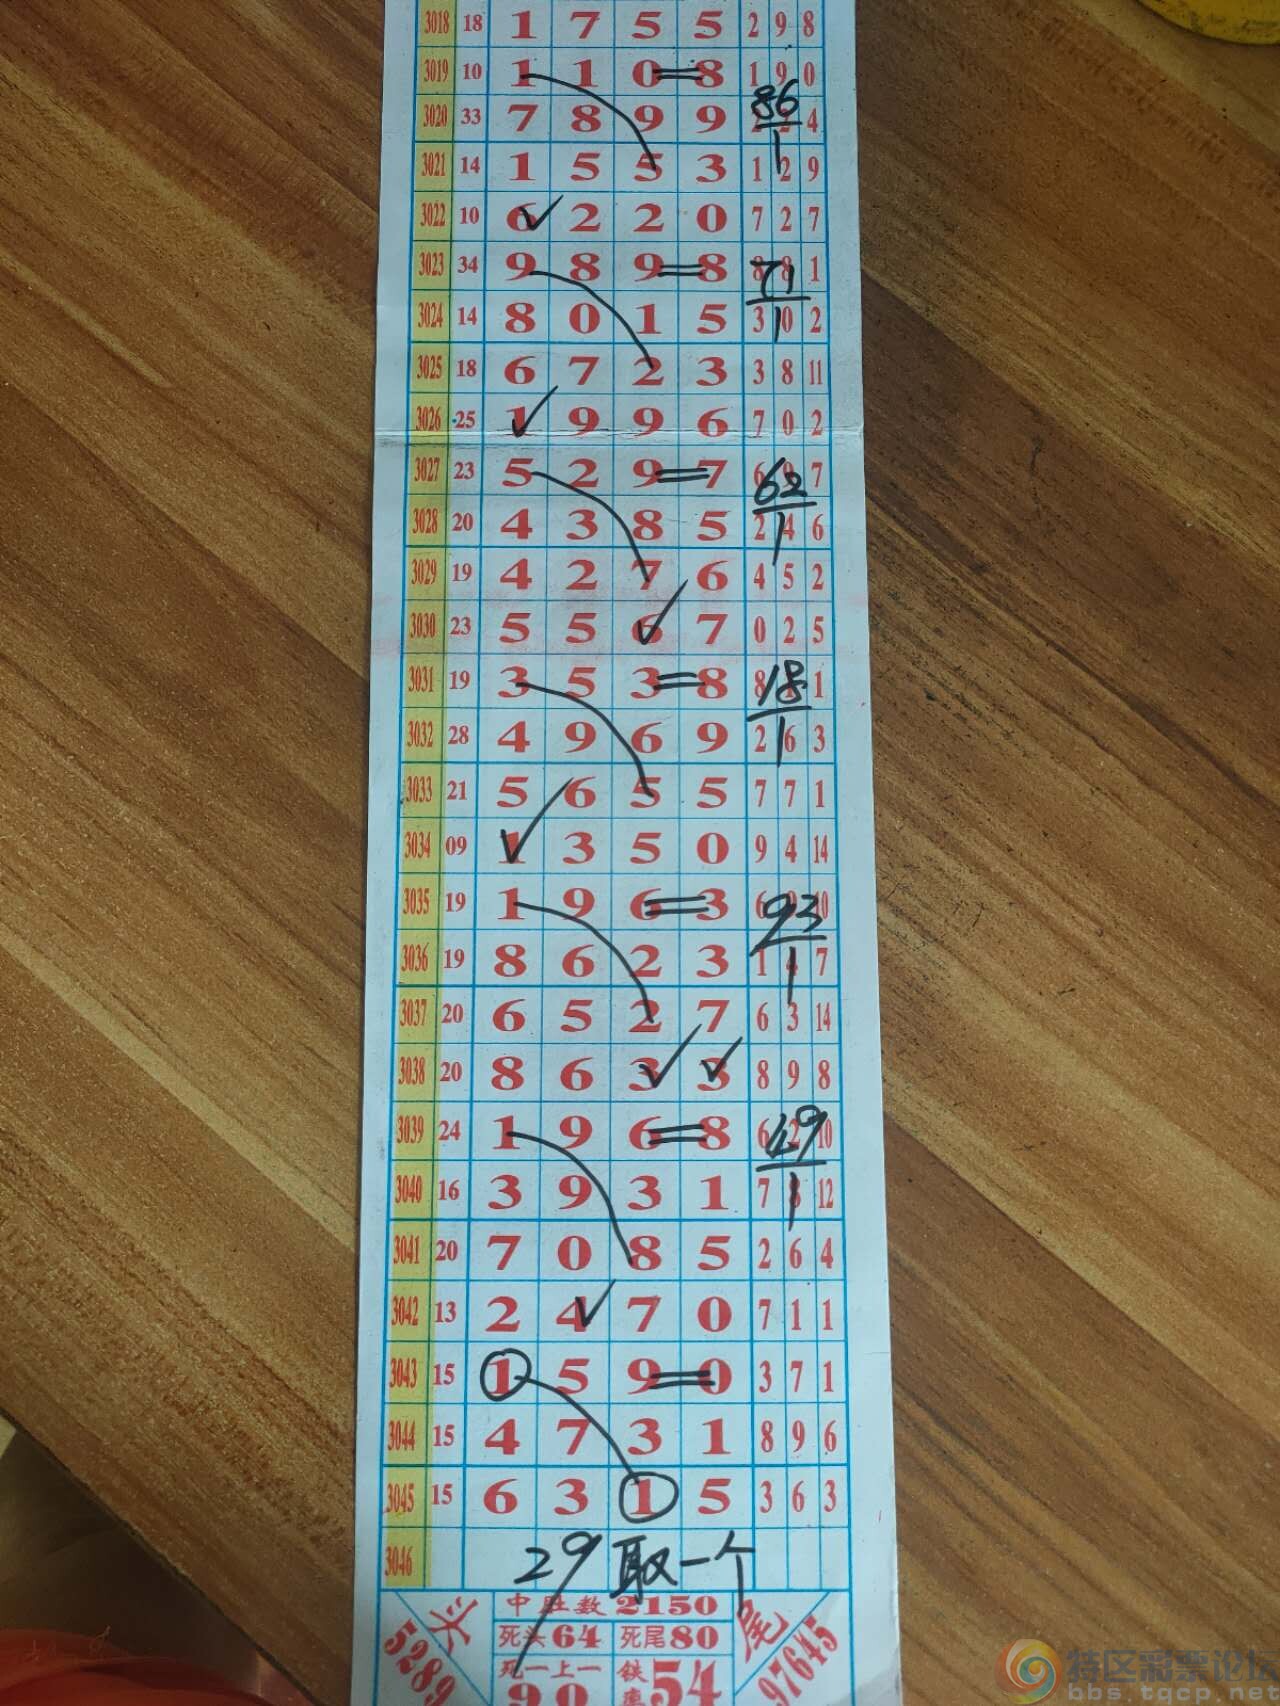 3018 18 1 7 5 5 2 9 8
3019 10 1 1 0 8 1 9 0
86
3020 33 7 8 9 9 4
1
3021 14 1 5 5 3 1 2 9
3022 10 6 2 2 0 7 2 7
3023 34 9 8 9 8 8 8 1
71
3024 14 8 0 1 5 3 0 2
1
3025 18 6 7 2 3 3 8 11
3026 25 1 9 9 6 7 0 2
3027 23 5 2 9 7 6 9 7
62
3028 20 4 3 8 5 2 4 6
1
3029 19 4 2 7 6 4 5 2
3030 23 5 5 6 7 0 2 5
3031 19 3 5 3 8 8 1
18
3032 28 4 9 6 9 2 6 3
1
3033 21 5 6 5 5 7 7 1
3034 09 1 3 5 0 9 4 14
3035 19 1 9 6 3 6 10
93
3036 19 8 6 2 3 1 4 7
1
3037 20 6 5 2 7 6 3 14
3038 20 8 6 3 3 8 9 8
3039 24 1 9 6 8 6 2 10
49
3040 16 3 9 3 1 7 8 12
1
3041 20 7 0 8 5 2 6 4
3042 13 2 4 7 0 7 1 1
3043 15 1 5 9 0 3 7 1
3044 15 4 7 3 1 8 9 6
3045 15 6 3 1 5 3 6 3
3046 29取一个
中胜数2150
头 5289
死头64 死尾80
尾 97645
死一上一 90
铁率54
特区彩票论坛
bbs.tqcp.net